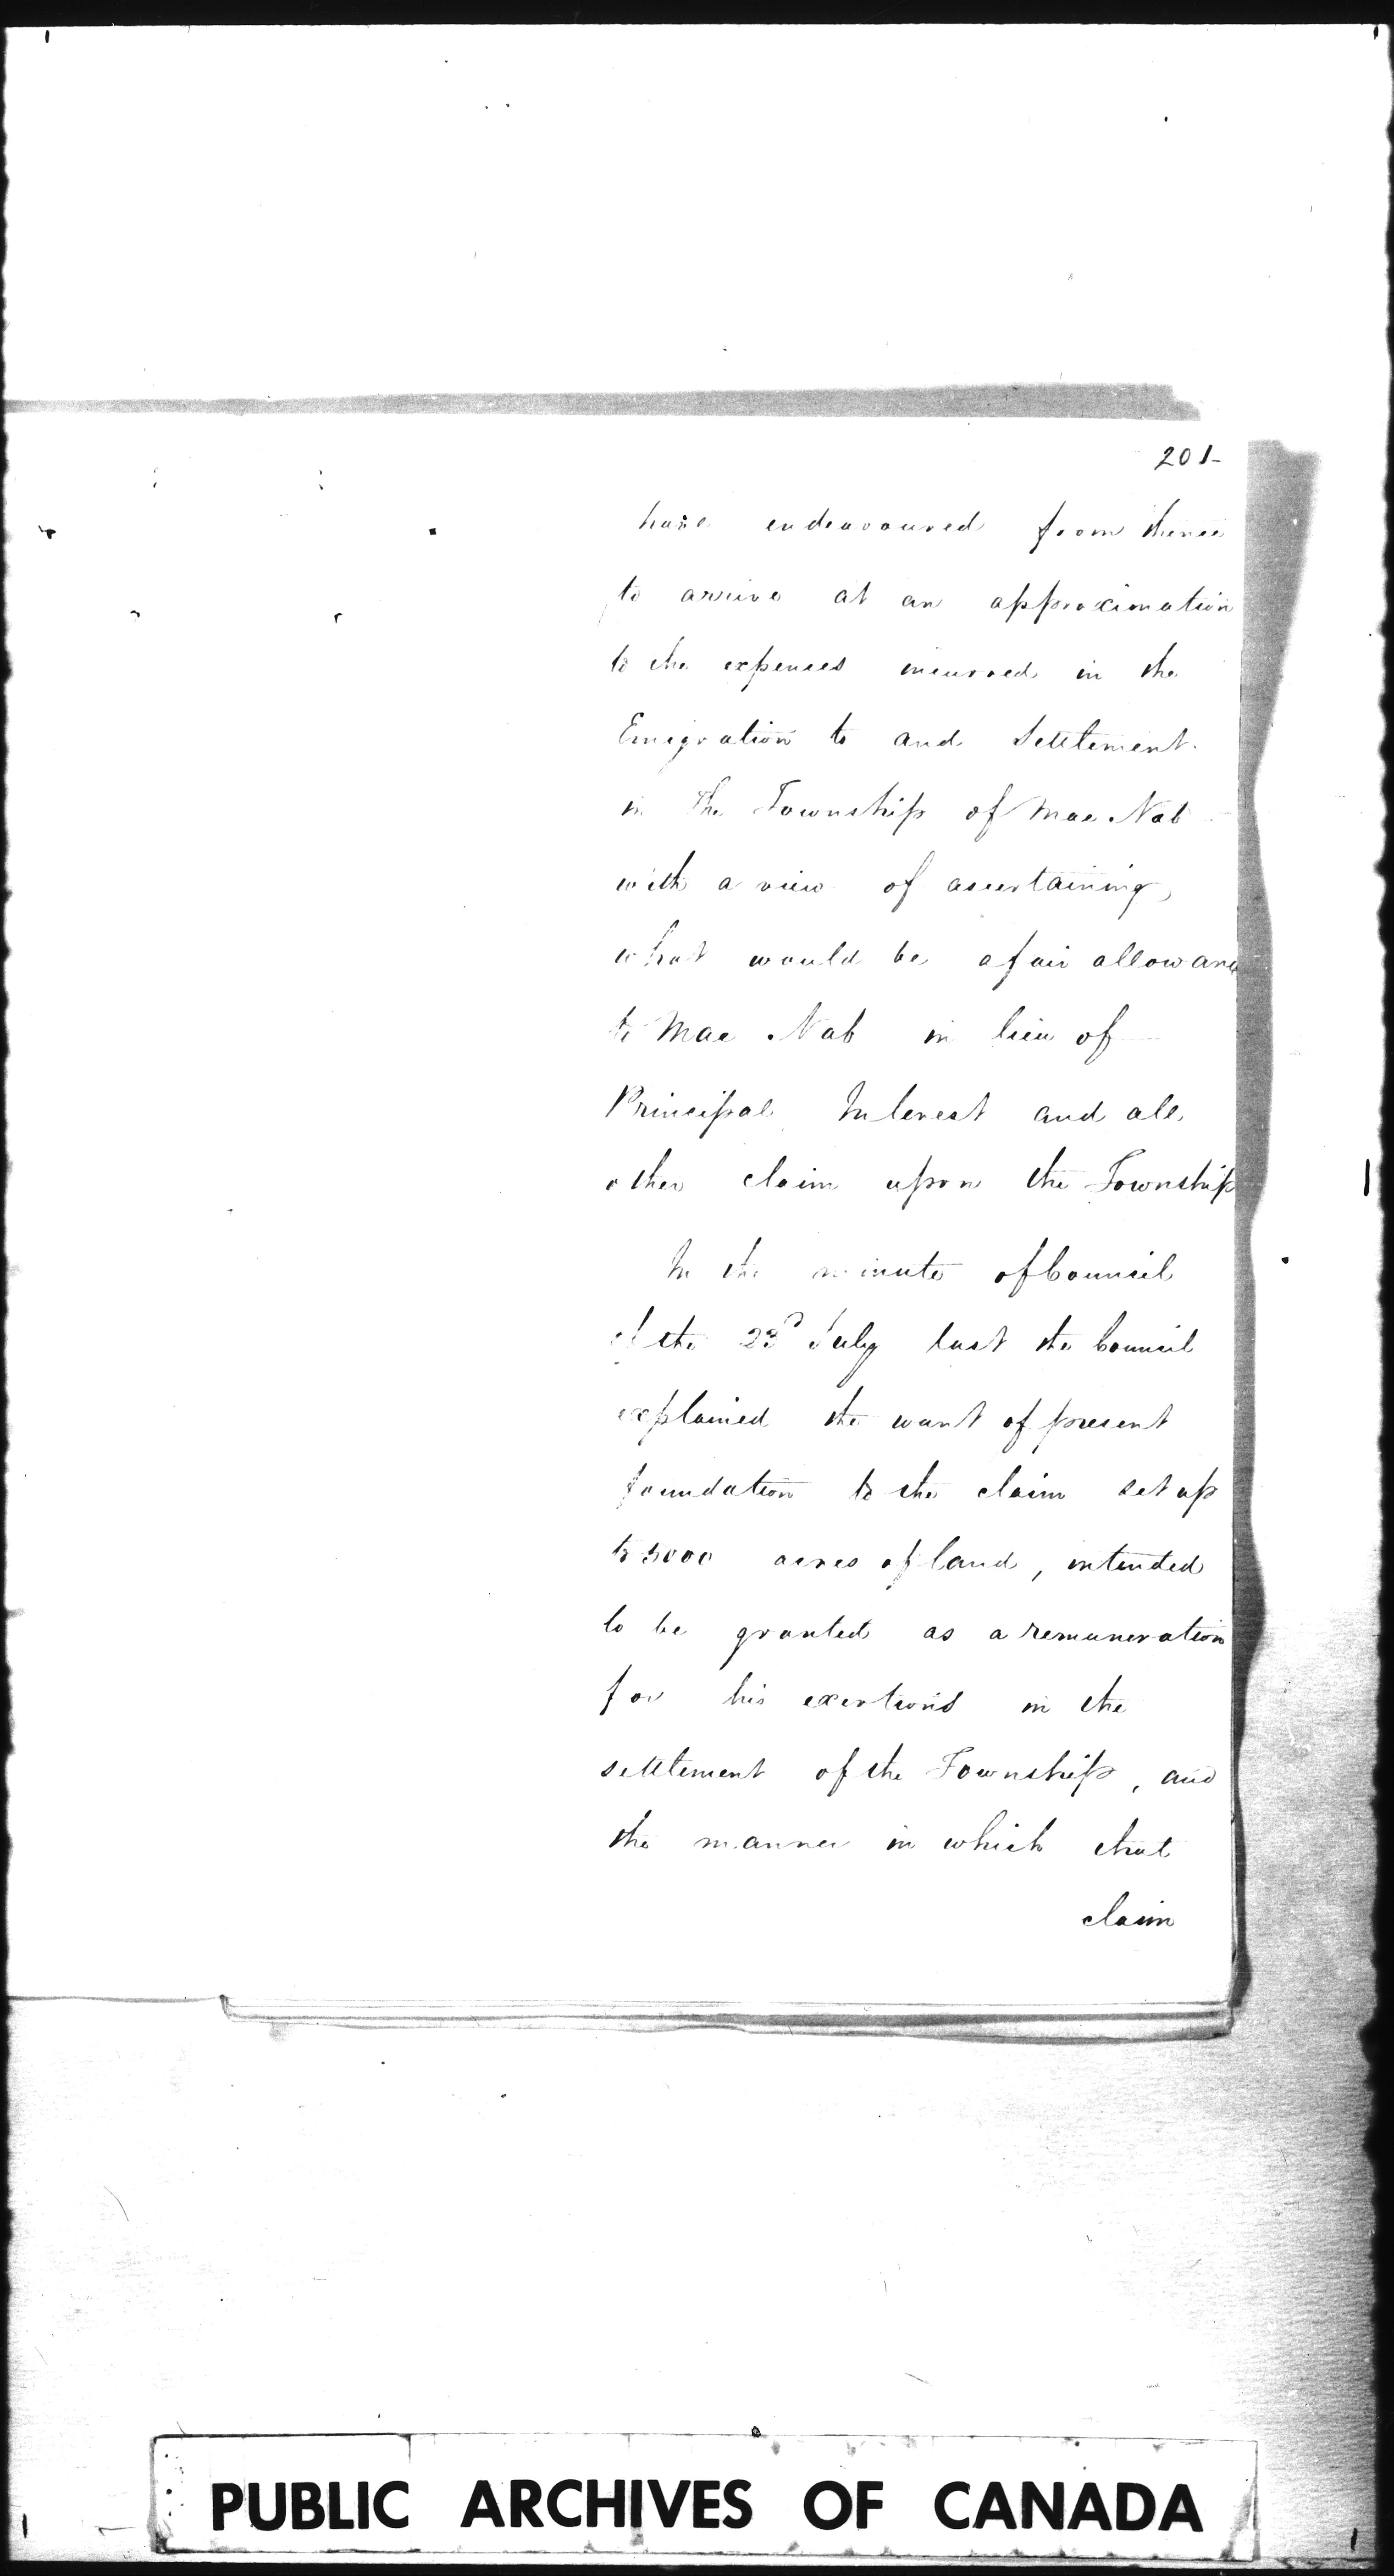 201-
have endeavoured from thence
to arrive at an approximation
to the expenses incurred in the
Emigration to and Settlement
in the Township of Mac Nab
with a view of ascertaining
what would be a fair allowance
to Mac Nab in lieu of
Principal Interest and all
other claim upon the Township
In the minute of Council
of the 23d July last the Council
explained the want of present
foundation to the claim set up
to 5000 acres of land, intended
to be granted as a remuneration
for his exertions in the
settlement of the Township, and
the manner in which that
claim
PUBLIC ARCHIVES OF CANADA